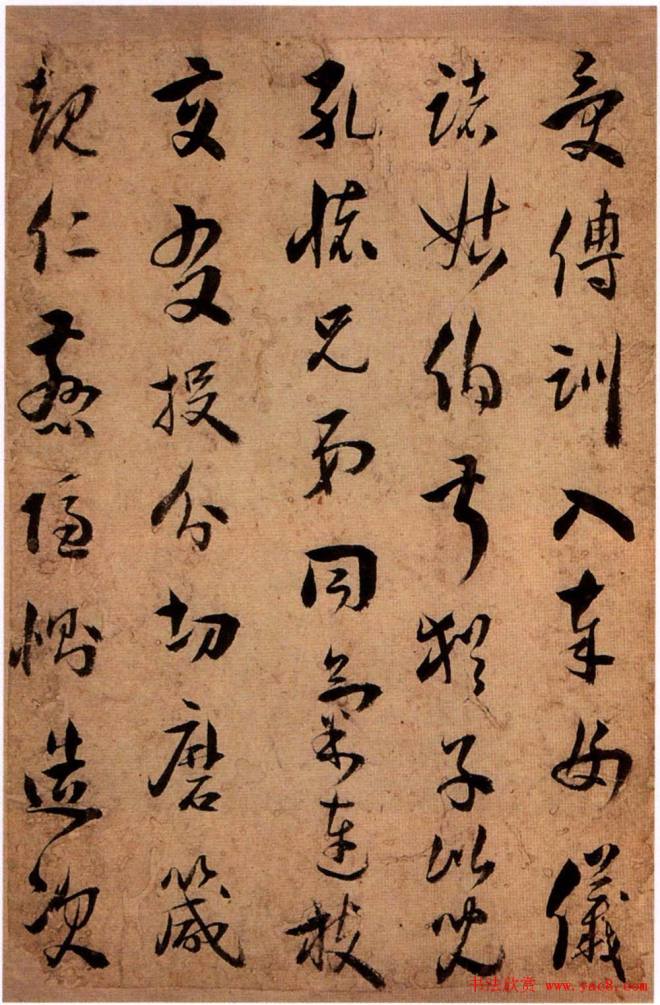 受傅訓入奉母儀
諸姑伯叔猶子比兒
孔懷兄弟同氣連枝
交友投分切磨箴
規仁慈隱惻造次
书法欣赏 www.yac8.com